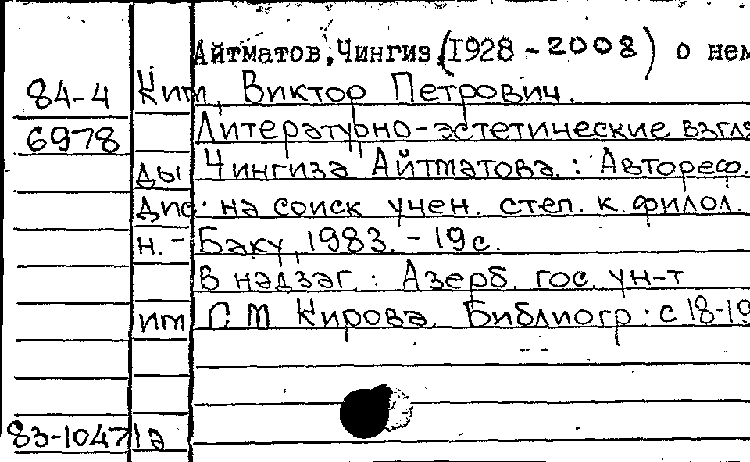 Айтматов, Чингиз (1928-2008) о нем
84-4 Ким, Виктор Петрович.
6978 Литературно-эстетические взгля
ды Чингиза Айтматова.: Автореф.
дис. на соиск учен. степ. к. филол.
н. - Баку, 1983. - 19 с.
В надзаг.: Азерб. гос. ун-т
им С М Кирова. Библиогр: с 18-19
83-10471а